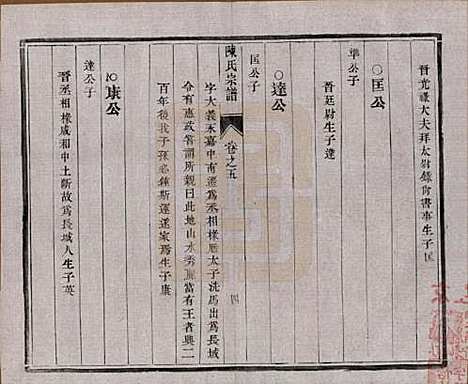 晉光祿大夫拜太尉錄尙書事生子匡
〇匡公
準公子
晉廷尉生子達
〇達公
匡公子
陳氏宗譜
卷之五
四
字大義永嘉中南遷爲丞相椽厯太子洗馬出爲長城
令有惠政嘗謂所親曰此地山水秀麗當有王者興二
百年後我子孫必鍾斯運遂家焉生子康
〇康公
達公子
晉丞相椽咸和中土斷故爲長城人生子英